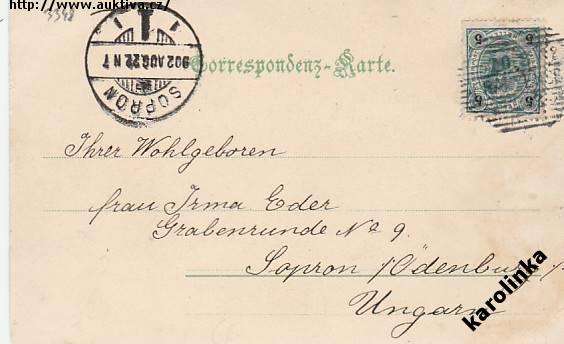 http://www.auktiva.cz/
3342
1 1 1
902 AUG. 22 N 7
SOPRON
Correspondenz-Karte.
5 5
5 5
Ihrer Wohlgeboren
frau Irma Eder
Grabenrunde No 9.
Sopron /Ödenburg/
Ungarn
karolinka